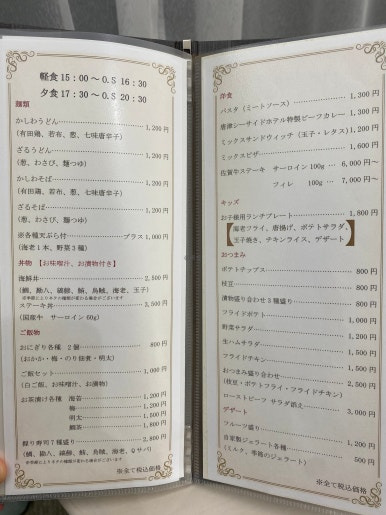 軽食 15：00～O.S 16：30
夕食 17：30～O.S 20：30
麺類
かしわうどん 1,200円
(有田鶏、若布、葱、七味唐辛子)
ざるうどん 1,200円
(葱、わさび、麺つゆ)
かしわそば 1,200円
(有田鶏、若布、葱、七味唐辛子)
ざるそば 1,200円
(葱、わさび、麺つゆ)
※各種天ぷら付 プラス1,000円
(海老1本、野菜3種)
丼物 【お味噌汁、お漬物付き】
海鮮丼 2,500円
ステーキ丼 3,500円
(国産牛 サーロイン60g)
ご飯物
おにぎり各種 2個 800円
(おかか・梅・のり佃煮・明太)
ご飯セット 1,000円
(白ご飯、お味噌汁、お漬物)
お茶漬け各種 海苔 1,200円
梅 1,200円
明太 1,500円
鯛茶 1,800円
握り寿司7種盛り 2,800円
※全て税込価格
洋食
パスタ(ミートソース) 1,300円
唐津シーサイドホテル特製ビーフカレー 1,300円
ミックスサンドウィッチ(玉子・レタス) 1,200円
ミックスピザ 1,600円
佐賀牛ステーキ サーロイン100g 6,000円～
フィレ 100g 7,000円～
キッズ
お子様用ランチプレート 1,800円
【海老フライ、唐揚げ、ポテトサラダ、
玉子焼き、チキンライス、デザート】
おつまみ
ポテトチップス 800円
枝豆 800円
漬物盛り合わせ3種盛り 800円
フライドポテト 1,000円
野菜サラダ 1,200円
生ハムサラダ 1,500円
フライドチキン 1,500円
おつまみ盛り合わせ 2,500円
(枝豆・ポテトフライ・フライドチキン)
ローストビーフ サラダ添え 3,000円
デザート
フルーツ盛り 1,300円
自家製ジェラート各種 500円
(ミルク、季節のジェラート)
※全て税込価格